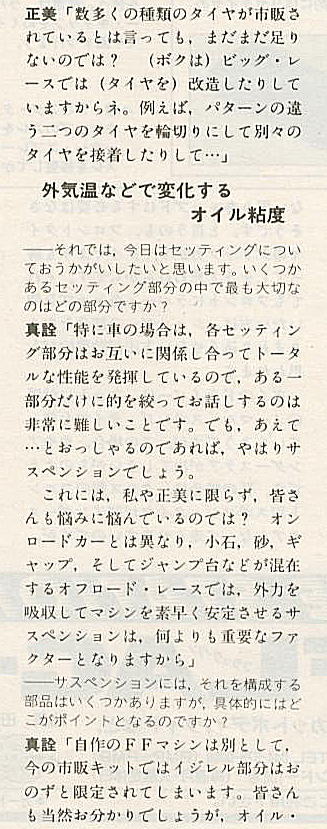 正美「数多くの種類のタイヤが市販さ
れているとは言っても，まだまだ足り
ないのでは？　(ボクは）ビッグ・レ
ースでは（タイヤを）改造したりして
いますからネ。例えば，パターンの違
う二つのタイヤを輪切りにして別々の
タイヤを接着したりして…」
外気温などで変化する
オイル粘度
――それでは，今日はセッティングについ
ておうかがいしたいと思います。いくつか
あるセッティング部分の中で最も大切な
のはどの部分ですか？
真詮「特に車の場合は，各セッティン
グ部分はお互いに関係し合ってトータ
ルな性能を発揮しているので，ある一
部分だけに的を絞ってお話しするのは
非常に難しいことです。でも，あえて
…とおっしゃるのであれば，やはりサ
スペンションでしょう。
　これには，私や正美に限らず，皆さ
んも悩みに悩んでいるのでは？　オン
ロードカーとは異なり，小石，砂，ギ
ャップ，そしてジャンプ台などが混在
するオフロード・レースでは，外力を
吸収してマシンを素早く安定させるサ
スペンションは，何よりも重要なファ
クターとなりますから」
――サスペンションには，それを構成する
部品はいくつかありますが，具体的にはど
こがポイントとなるのですか？
真詮「自作のＦＦマシンは別として，
今の市販キットではイジレル部分はお
のずと限定されてしまいます。皆さん
も当然お分かりでしょうが，オイル・